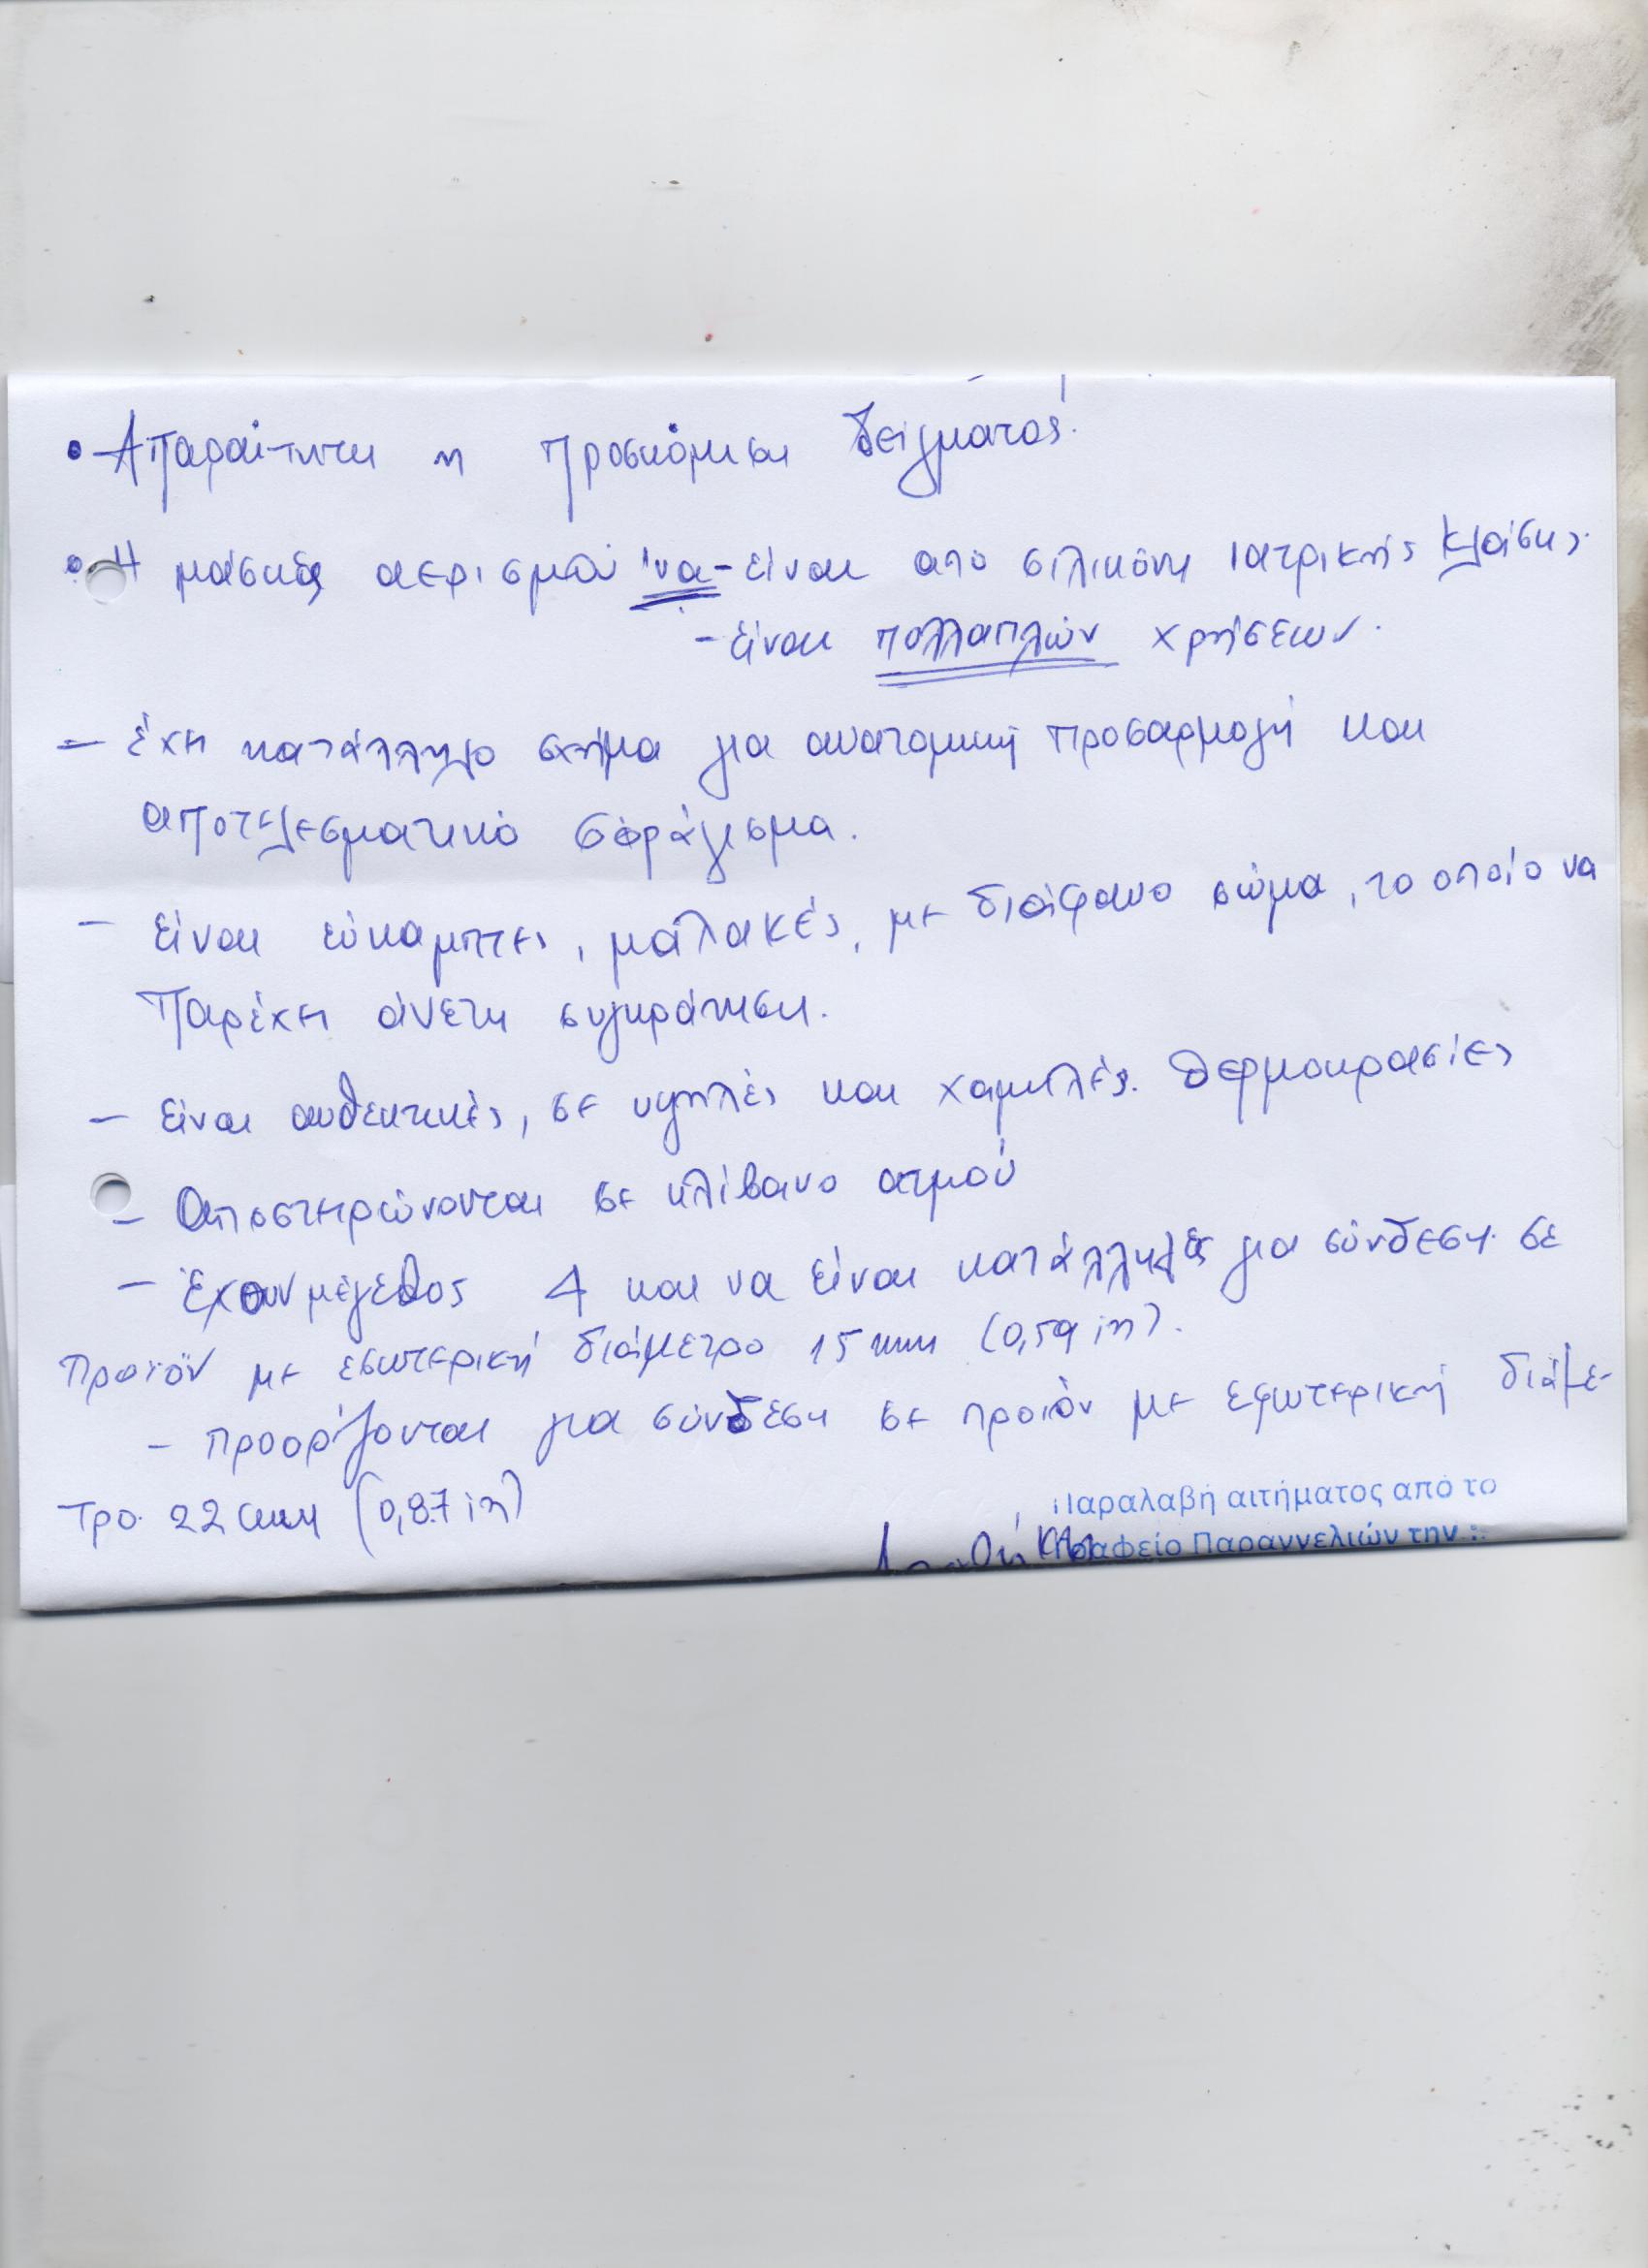 • Απαραίτητη η προσκόμιση δείγματος!
• Η μάσκες αερισμού να - είναι από σιλικόνη ιατρικής κλάσης.
- είναι πολλαπλών χρήσεων.
- έχει κατάλληλο σχήμα για ανατομική προσαρμογή και
αποτελεσματικό σφράγισμα.
- είναι εύκαμπτες, μαλακές, με διάφανο σώμα, το οποίο να
παρέχει άνετη συγκράτηση.
- είναι ανθεκτικές, σε υψηλές και χαμηλές. θερμοκρασίες
- αποστηρώνονται σε κλίβανο ατμού
- έχουν μέγεθος 4 και να είναι κατάλληλες για σύνδεση σε
προϊόν με εσωτερική διάμετρο 15 mm (0,59 in).
- προορίζονται για σύνδεση σε προιόν με εξωτερική διάμε-
τρο 22 mm (0,87 in)
Παραλαβή αιτήματος από το
Γραφείο Παραγγελιών την :